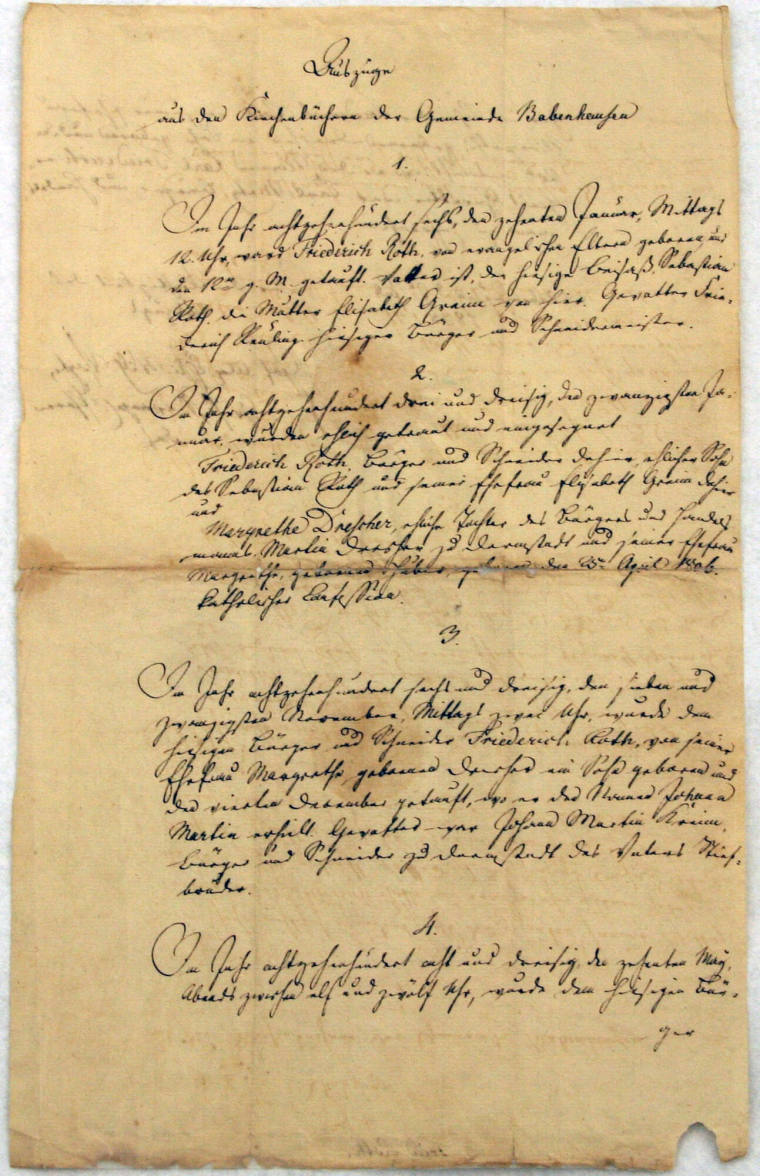 Auszüge
aus den Kirchenbüchern der Gemeinde Babenhausen
1.
Im Jahr achtzehnhundert sechs, den zehenten Januar, Mittags
12 Uhr, ward Friederich Roth, von evangelischen Eltern geboren und
den 12ten g. M. getauft. Vatter ist, der hiesige Beisaß, Sebastian
Roth, die Mutter Elisabeth Grimm von hier. Gevatter Frie-
derich hiesiger Bürger und Schneidermeister.
2.
Im Jahr achtzehenhundert drei und dreisig, den zwanzigsten Ja-
nuar, wurden ehlich getraut und eingesegnet
Friederich Roth, Bürger und Schneider dahier, ehlicher Sohn
des Sebastian Roth und seiner Ehefrau Elisabeth Grimm dahier
und
Margrethe Drescher, ehliche Tochter des Bürgers und Handels-
manns Martin Drescher zu Darmstadt und seiner Ehefrau
Margrethe, geborene geboren den 25ten April 1806.
katholischer Confession.
3.
Im Jahr achtzehenhundert sechs und dreisig, den sieben und
zwanzigsten November, Mittags zwei Uhr, wurde dem
hiesigen Bürger und Schneider Friederich Roth, von seiner
Ehefrau Margrethe, geborenen Drescher ein Sohn geboren und
den vierten December getauft, wo er den Namen Johann
Martin erhielt. Gevatter war Johann Martin
Bürger und Schneider zu Darmstadt des Vaters Stief-
bruder.
4.
Im Jahr achtzehenhundert acht und dreisig, den zehenten May,
Abends zwischen elf und zwölf Uhr, wurde dem hiesigen Bür-
ger